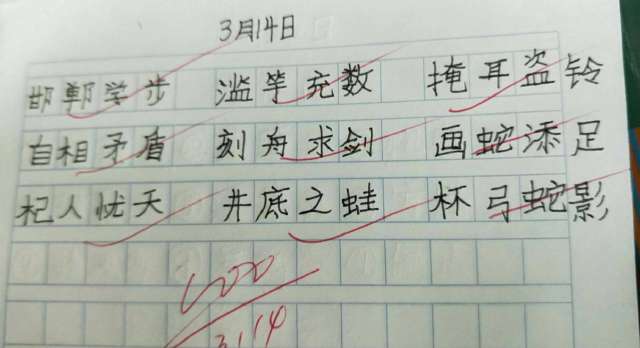 3月14日
邯郸学步 滥竽充数 掩耳盗铃
自相矛盾 刻舟求剑 画蛇添足
杞人忧天 井底之蛙 杯弓蛇影
100
3.14